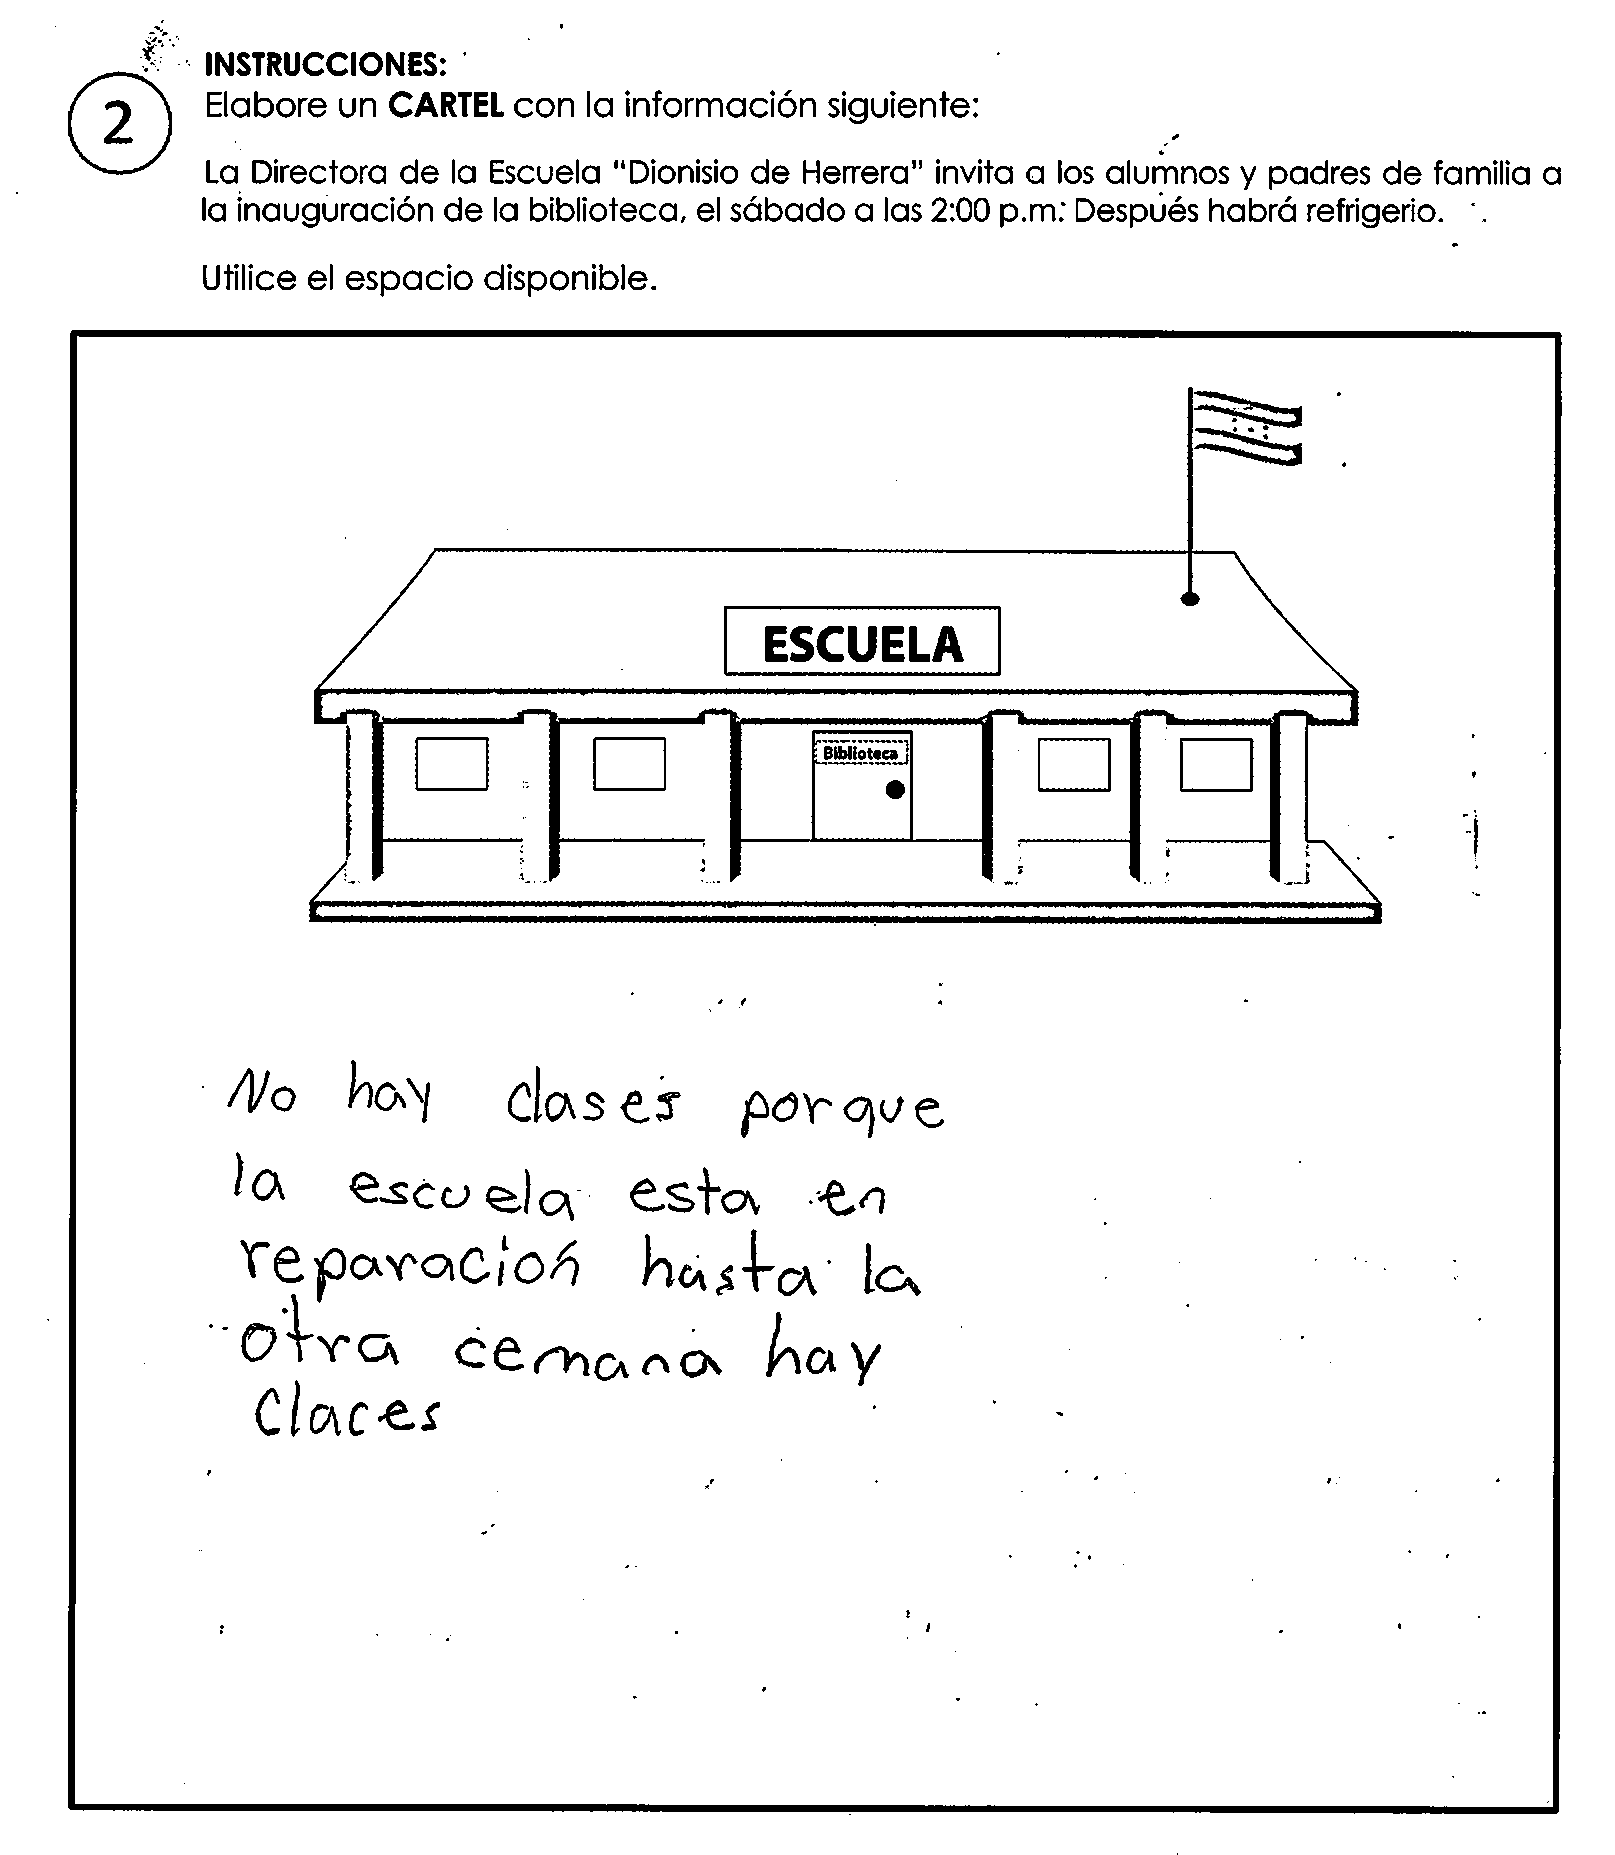 INSTRUCCIONES:
2
Elabore un CARTEL con la información siguiente:
La Directora de la Escuela "Dionisio de Herrera" invita a los alumnos y padres de familia a
la inauguración de la biblioteca, el sábado a las 2:00 p.m. Después habrá refrigerio.
Utilice el espacio disponible.
ESCUELA
Biblioteca
No hay clases porque
la escuela esta en
reparación hasta la
otra cemana hay
Claces